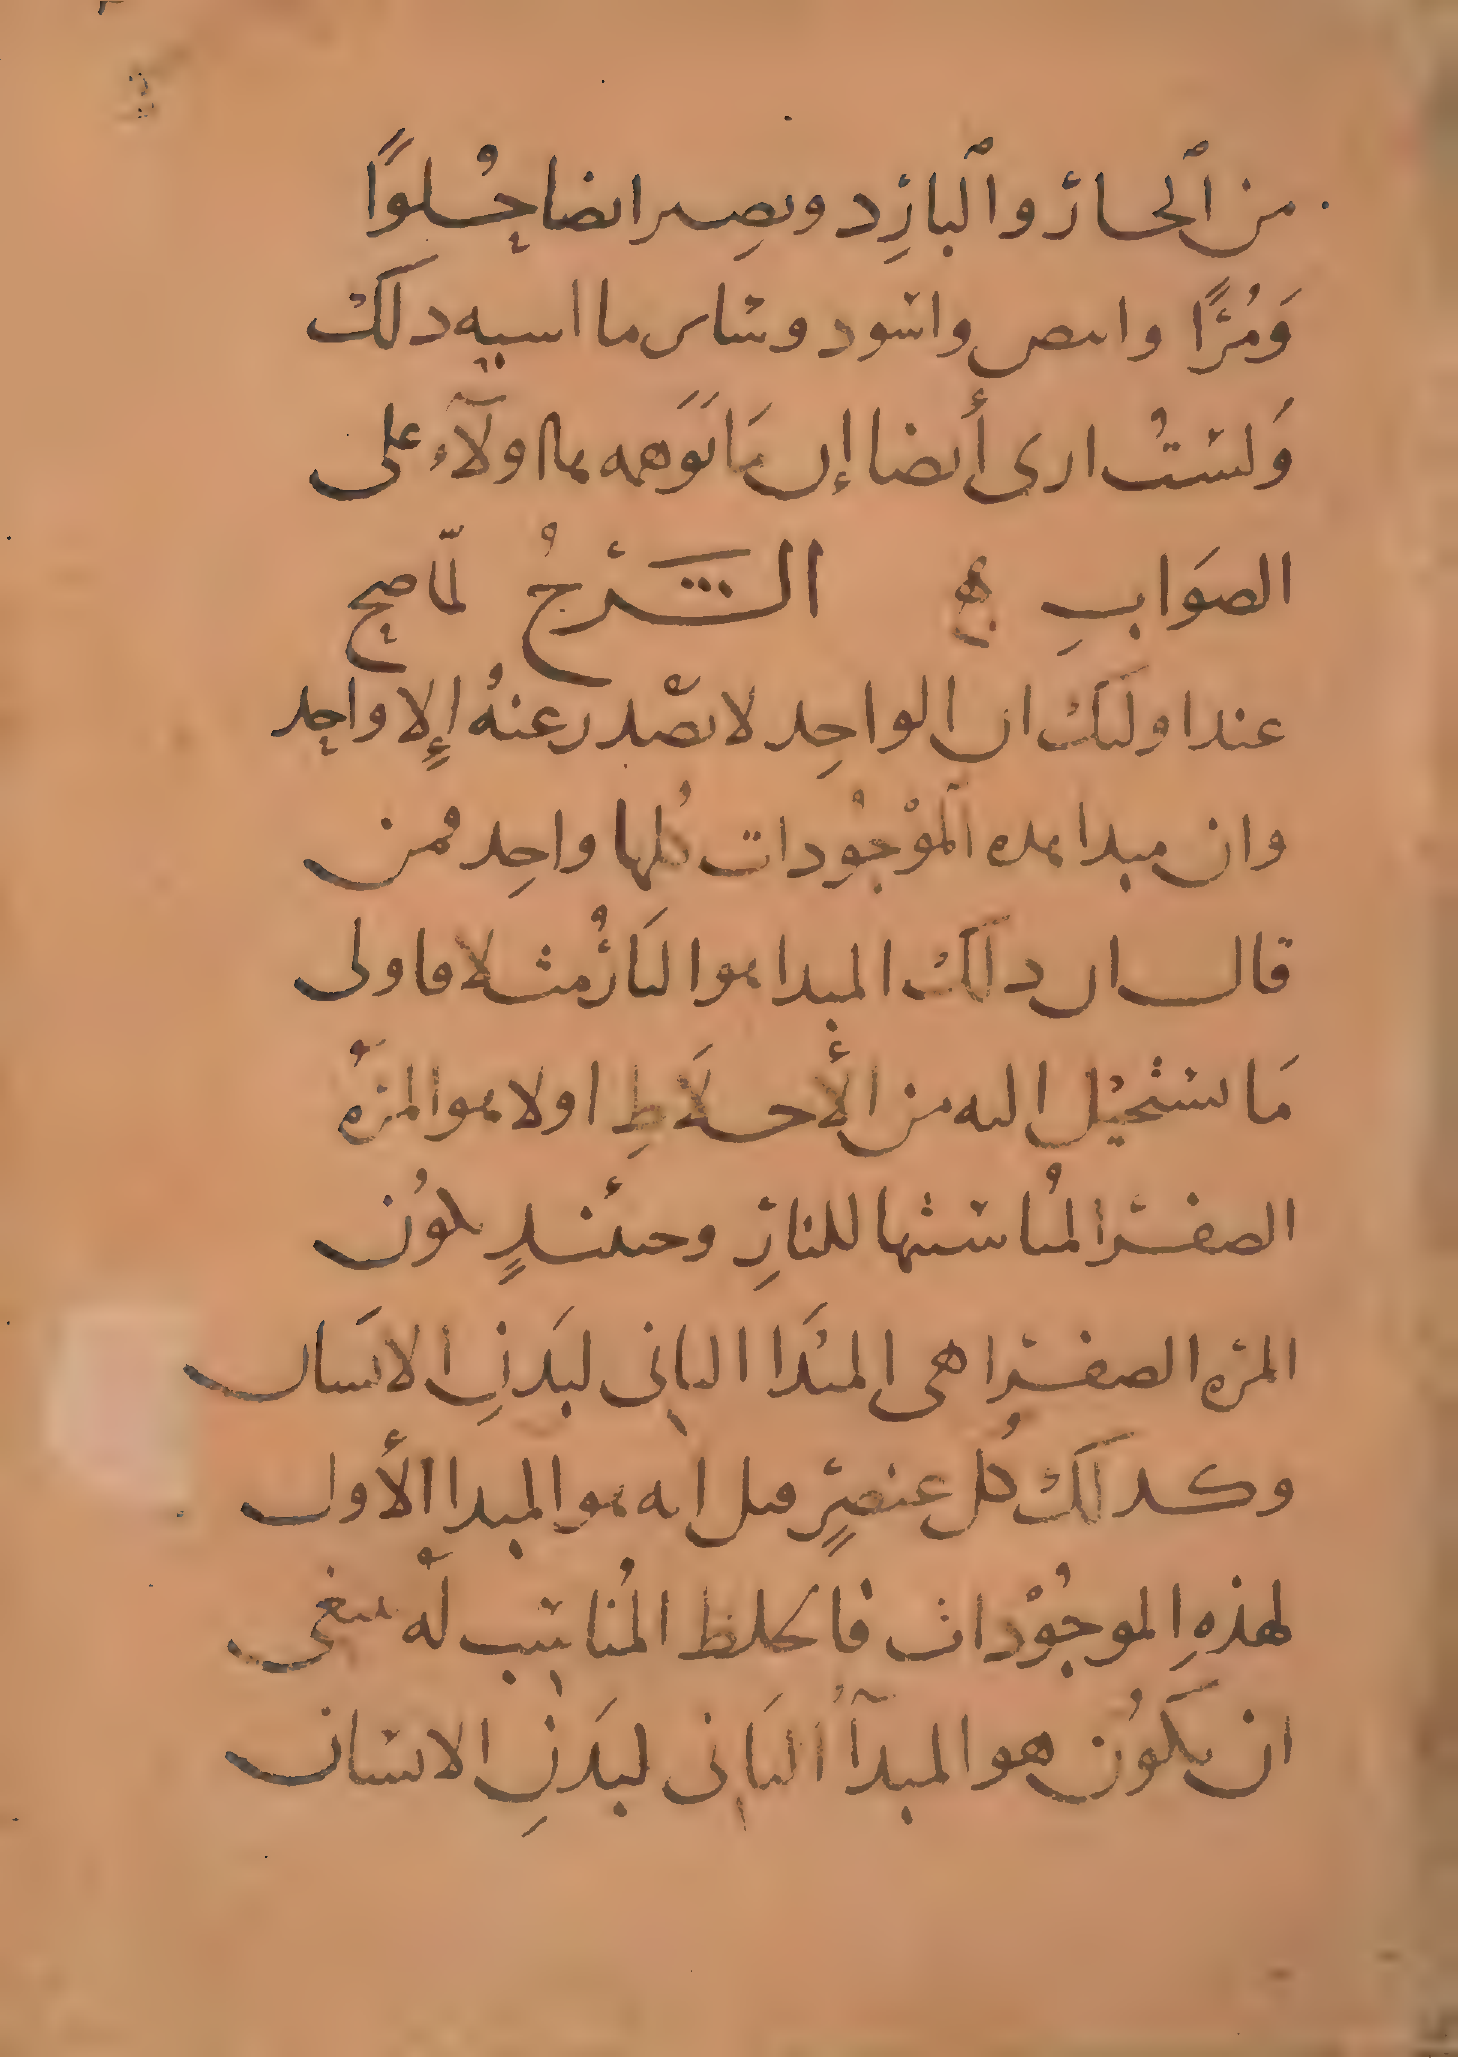 من الحار والبارد ويصير ايضا حُلوًا
وَمُرًّا وابيض واسود وسايرما اشبه ذلك
وَلستُ ارى أيضا إن مَا تَوَهمه هاولآء على
الصوَابِ الشرحُ لمّا صح
عند اوليك ان الواحِد لا يصْدر عنهُ إلا واحِد
وان مبدا هده الموْجُودات كُلها واحِد فمن
قال ان ذلك المبدا هو النَارُ مثلا فاولى
مَا يستحيْل اليه من الأخلاَطِ اولا هو المرّهُ
الصفرا لمُناسبتها للنارِ وحينئدٍ يكوُن
المرّه الصفرا هى المبدَا الثانى لبدَنِ الانسان
وكذلك كُل عنصرٍ قيل انه هو المبدا الأول
لهذهِ الموجُوْدات فالخلط المُناسب لهُ ينبغى
ان يكوُن هو المبدأ الثانى لبدَنِ الانسان